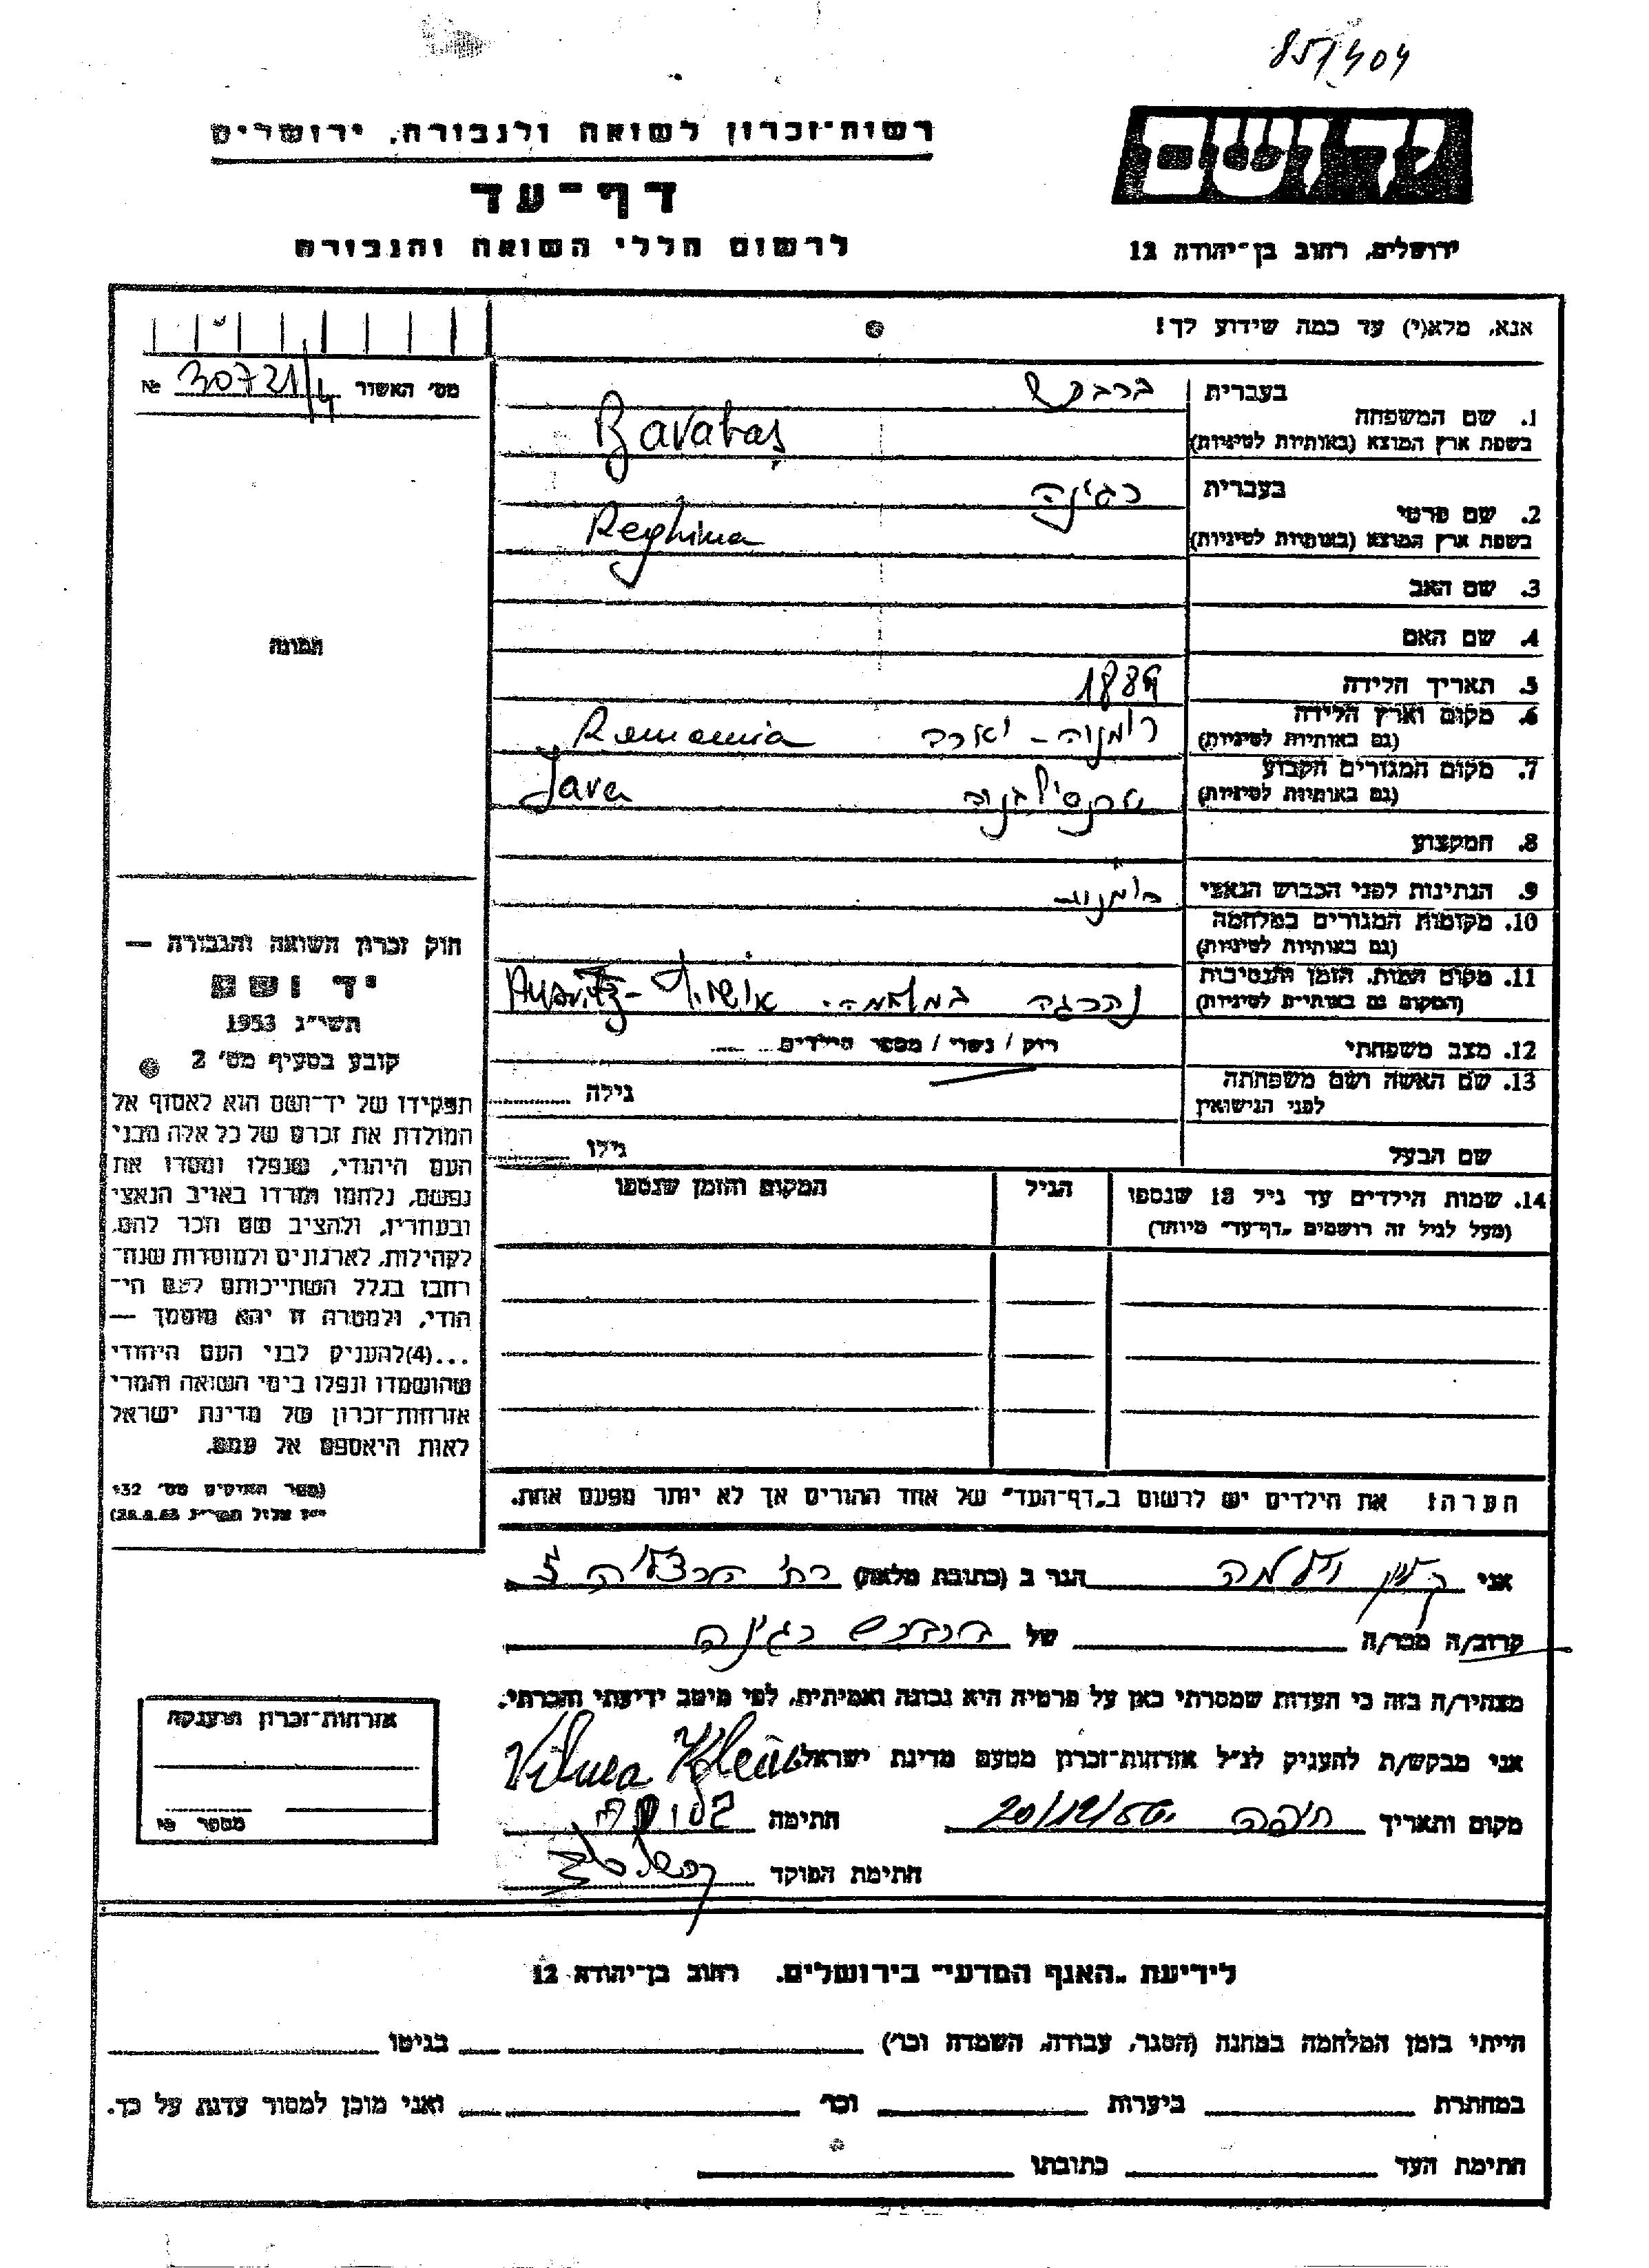 85/404
רשות־זכרון לשואה ולגבורה, ירושלים
יד ושם
דף־עד
לרשום חללי השואה והגבורה
ירושלים, רחוב בן־יהודה 12
אנא, מלא(י) עד כמה שידוע לך!
מס׳ האשור 30721/4 №
בעברית ברבש
1. שם המשפחה
בשפת ארץ המוצא (באותיות לטיניות) Barabaș
בעברית רגינה
2. שם פרטי
בשפת ארץ המוצא (באותיות לטיניות) Reghina
3. שם האב
4. שם האם
תמונה
5. תאריך הלידה
6. מקום וארץ הלידה רומניה - יארה Romania
(גם באותיות לטיניות)
7. מקום המגורים הקבוע טרנסילבניה Jara
(גם באותיות לטיניות)
8. המקצוע
9. הנתינות לפני הכבוש הנאצי רומנית
10. מקומות המגורים במלחמה
(גם באותיות לטיניות)
11. מקום המות, הזמן והנסיבות נהרגה במלחמה. אושויץ -
(המקום גם באותיות לטיניות)
12. מצב משפחתי רוק / נשוי / מספר הילדים
13. שם האשה ושם משפחתה גילה
לפני הנישואין
שם הבעל גילו
14. שמות הילדים עד גיל 18 שנספו הגיל המקום והזמן שנספו
(מעל לגיל זה רושמים „דף־עד״ מיוחד)
חוק זכרון השואה והגבורה —
יד ושם
תשי״ג 1953
קובע בסעיף מס׳ 2
תפקידו של יד־ושם הוא לאסוף אל
המולדת את זכרם של כל אלה מבני
העם היהודי, שנפלו ומסרו את
נפשם, נלחמו ומרדו באויב הנאצי
ובעוזריו, ולהציב שם וזכר להם,
לקהילות, לארגונים ולמוסדות שנח־
רבו בגלל השתייכותם לעם הי־
הודי, ולמטרה זו יהא מוסמך —
...(4) להעניק לבני העם היהודי
שהושמדו ונפלו בימי השואה והמרי
אזרחות־זכרון של מדינת ישראל
לאות היאספם אל עמם.
(ספר החוקים מס׳ 132
הערה! את הילדים יש לרשום ב„דף־העד״ של אחד ההורים אך לא יותר מפעם אחת.
אני קליין וילמה הגר ב (כתובת מלאה) רח׳ הרצליה 5
קרוב/ה מכר/ה של ברבש רגינה
מצהיר/ה בזה כי העדות שמסרתי כאן על פרטיה היא נכונה ואמיתית, לפי מיטב ידיעתי והכרתי.
אני מבקש/ת להעניק לנ״ל אזרחות־זכרון מטעם מדינת ישראל
Vilma Klein
מקום ותאריך חיפה חתימה
חתימת הפוקד
אזרחות־זכרון הוענקה
מספר №
לידיעת „האגף המדעי״ בירושלים. רחוב בן־יהודה 12
הייתי בזמן המלחמה במחנה (הסגר, עבודה, השמדה וכו׳) בגיטו
במחתרת ביערות וכו׳ ואני מוכן למסור עדות על כך.
חתימת העד כתובתו